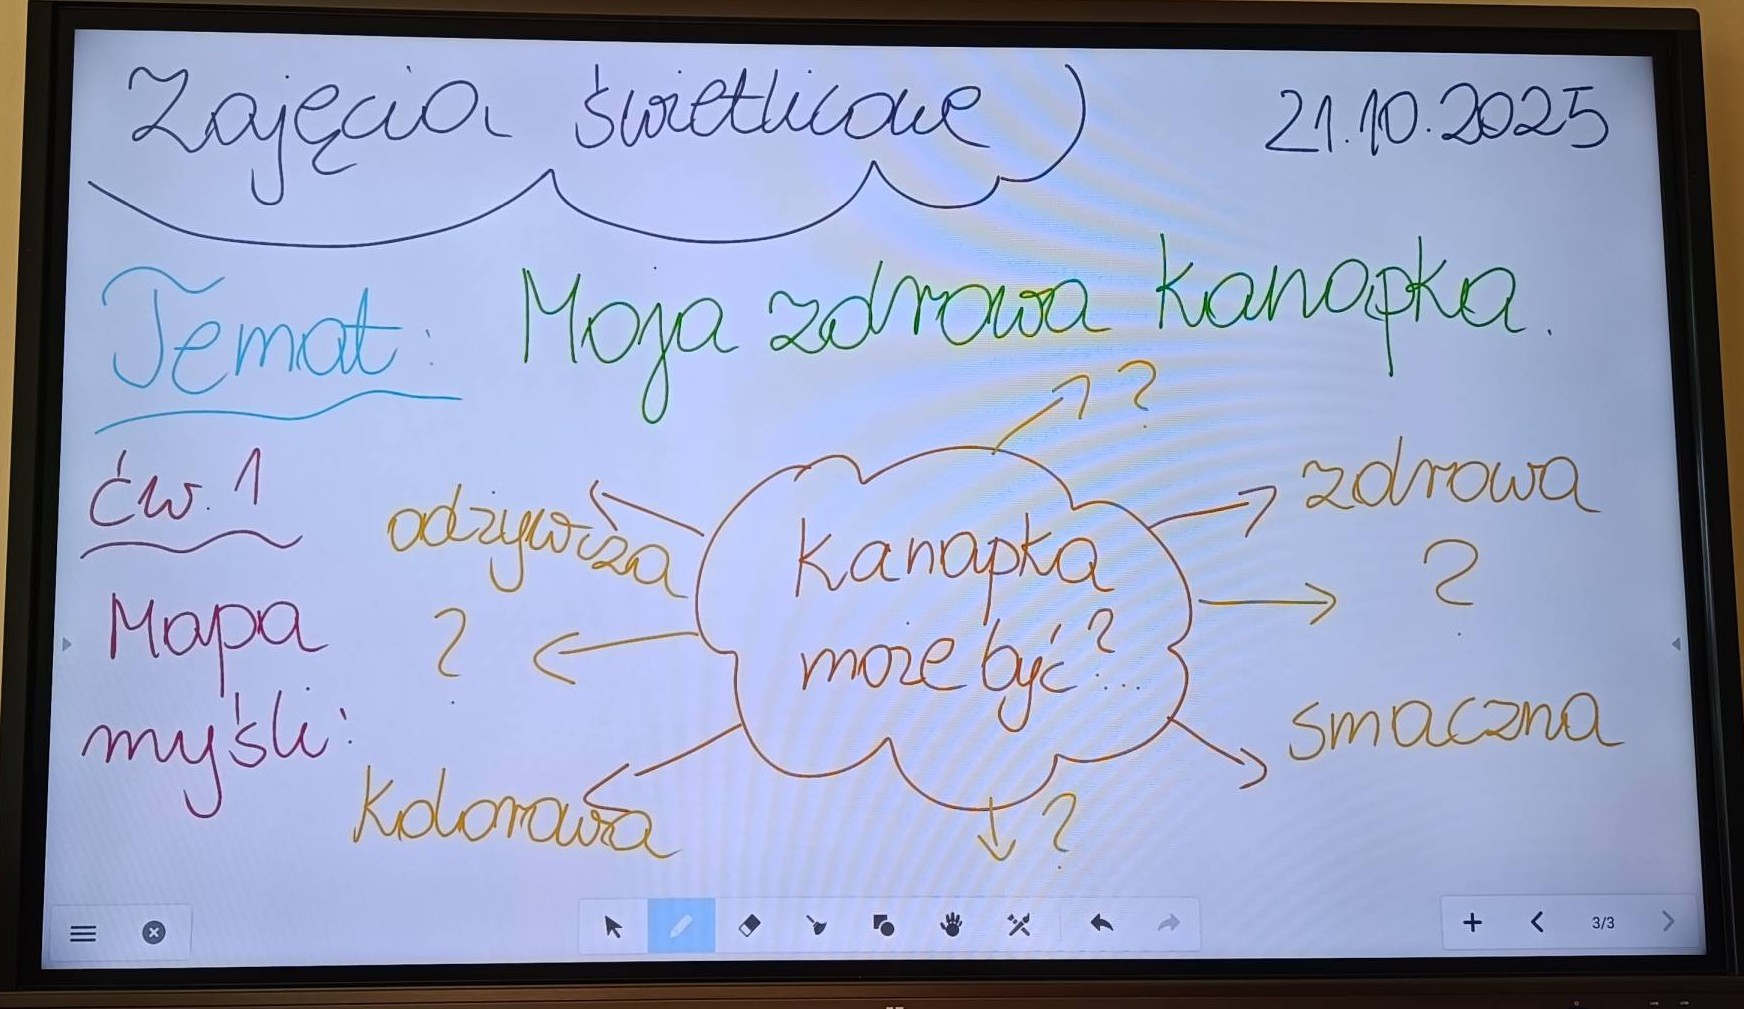 Zajęcia świetlicowe
21.10.2025
Temat: Moja zdrowa kanapka.
ćw. 1
Mapa
myśli:
kanapka
może być?...
?
zdrowa
?
smaczna
?
kolorowa
?
odżywcza
3/3